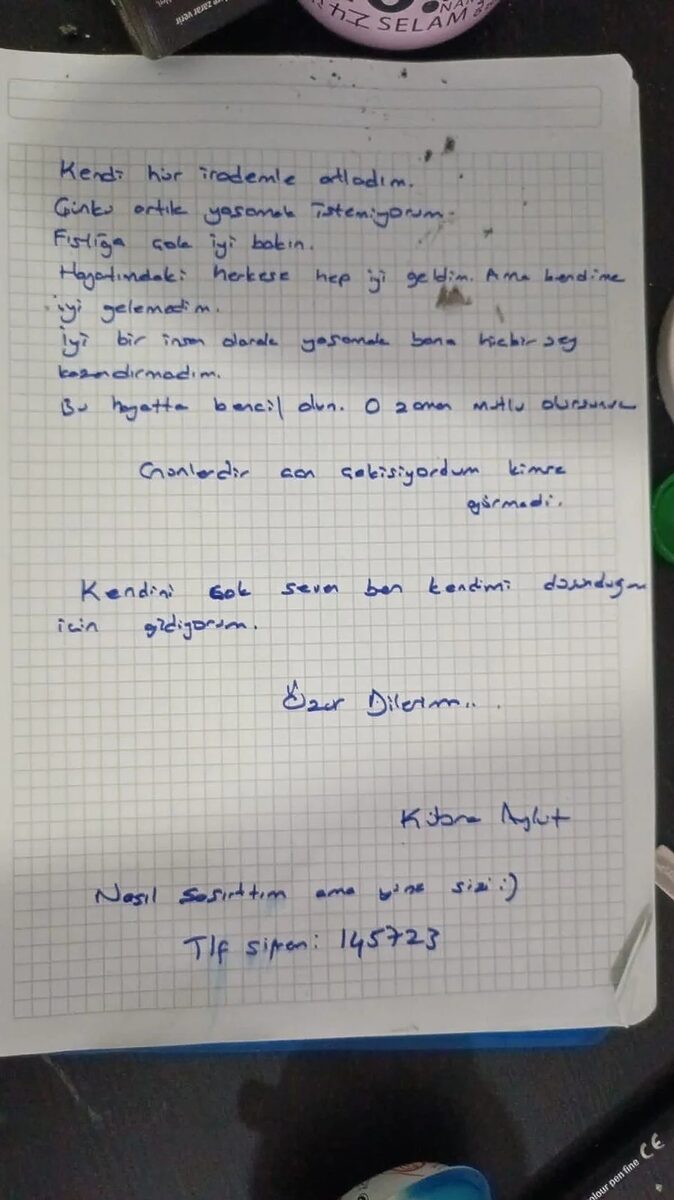 SELAM
Kendi hür irademle atladım.
Çünkü artık yaşamak istemiyorum.
Fıstığa çok iyi bakın.
Hayatımdaki herkese hep iyi geldim. Ama kendime
iyi gelemedim.
İyi bir insan olarak yaşamak bana hiçbir şey
kazandırmadım.
Bu hayatta bencil olun. O zaman mutlu olursunuz
Günlerdir can çekişiyordum kimse
görmedi.
Kendini çok seven ben kendimi düşündüğüm
için gidiyorum.
Özür Dilerim...
Kübra Aykut
Nasıl şaşırttım ama yine sizi :)
Tlf şifrem: 145723
olour pen fine CE